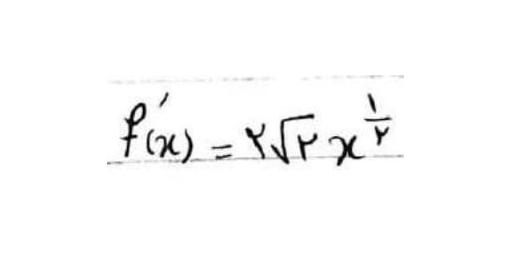 f'(x) = ۲√۲ x^{۱/۲}